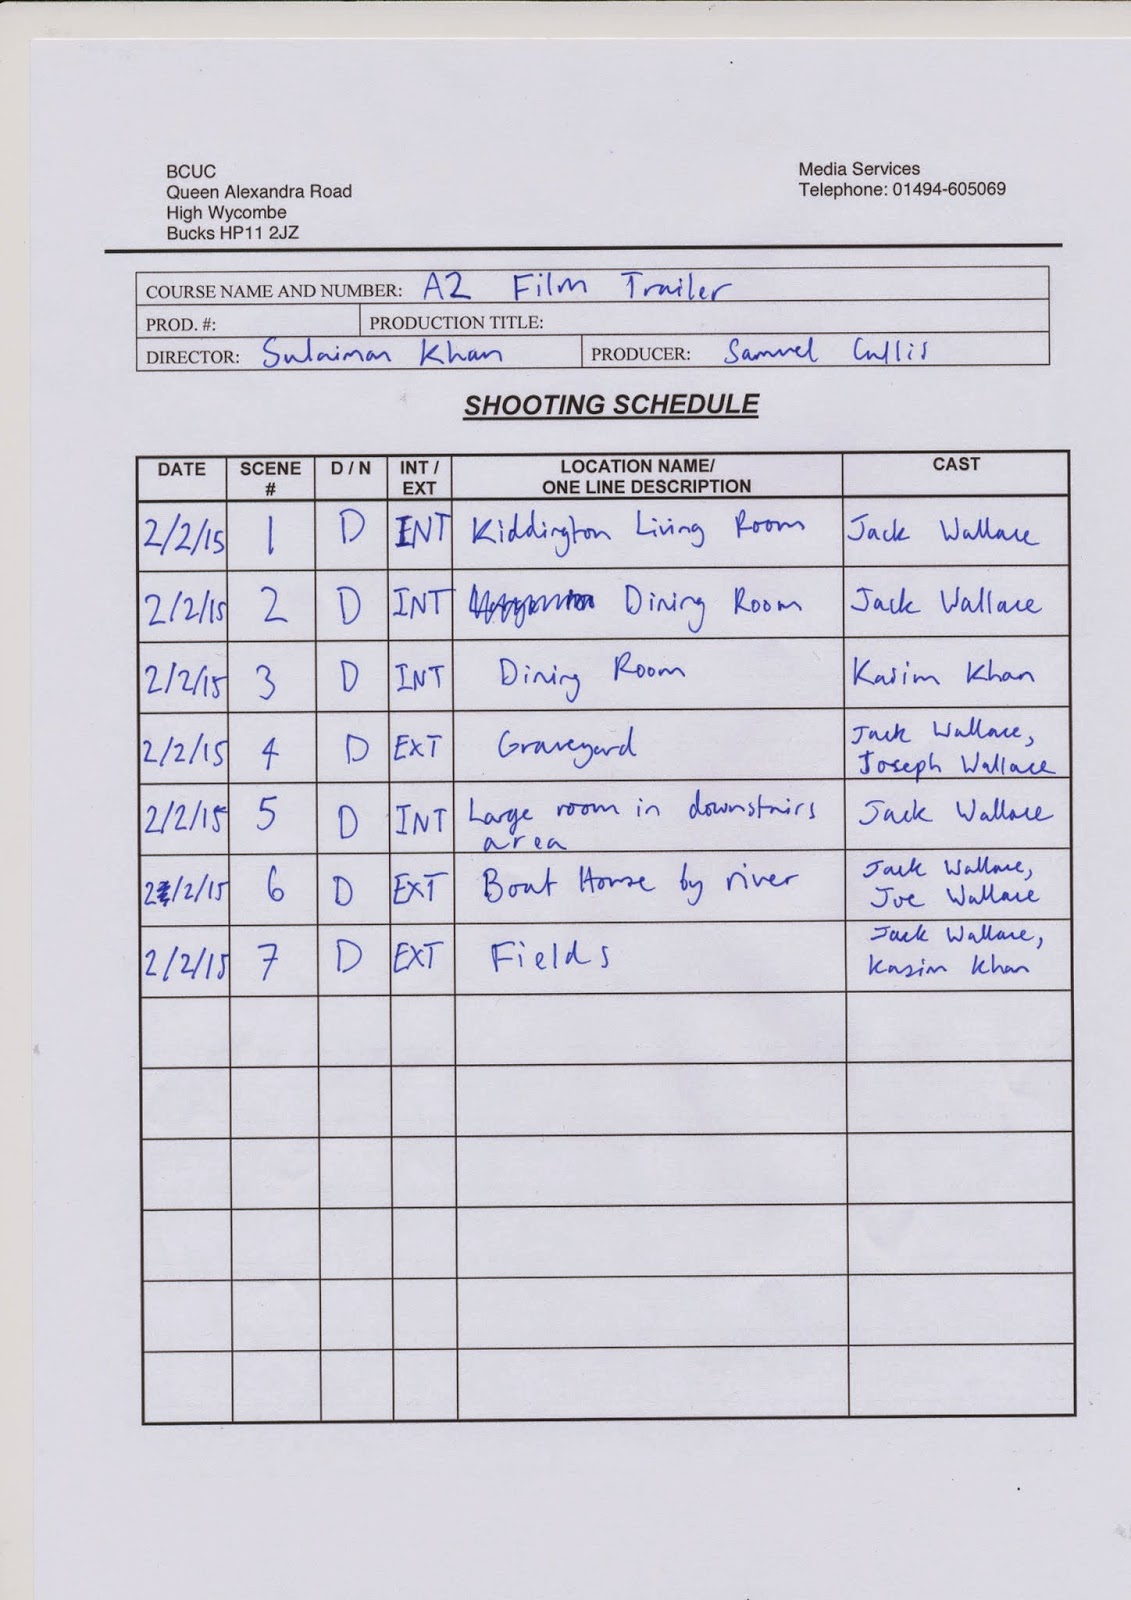 BCUC
Queen Alexandra Road
High Wycombe
Bucks HP11 2JZ
Media Services
Telephone: 01494-605069
COURSE NAME AND NUMBER: A2 Film Trailer
PROD. #: PRODUCTION TITLE:
DIRECTOR: Sulaiman Khan PRODUCER: Samuel Cullis
SHOOTING SCHEDULE
DATE SCENE # D / N INT / EXT LOCATION NAME/ ONE LINE DESCRIPTION CAST
2/2/15 1 D INT Kiddington Living Room Jack Wallace
2/2/15 2 D INT Dining Room Jack Wallace
2/2/15 3 D INT Dining Room Kasim Khan
2/2/15 4 D EXT Graveyard Jack Wallace, Joseph Wallace
2/2/15 5 D INT Large room in downstairs area Jack Wallace
2/2/15 6 D EXT Boat House by river Jack Wallace, Joe Wallace
2/2/15 7 D EXT Fields Jack Wallace, Kasim Khan